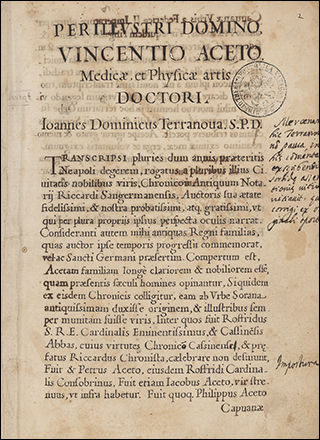 2
PERILLVSTRI DOMINO,
VINCENTIO ACETO
Medicæ, et Physicæ artis
DOCTORI.
Ioannes Dominicus Terranoua. S. P. D.
TRANSCRIPSI pluries dum annis præteritis
Neapoli degerem, rogatus a pluribus illius Ci
uitatis nobilibus viris, Chronicon Antiquum Nota
rij Riccardi Sangermanensis, Auctoris sua ætate
fidelissimi, & nostra probatissimi, atq. gratissimi, vt
qui per plura proprijs ipsius perspecta oculis narrat.
Consideranti autem mihi antiquas Regni familias,
quas auctor ipse temporis progressu commemorat,
vel ac Sancti Germani præsertim. Compertum est,
Acetam familiam longè clariorem & nobiliorem esse,
quam præsentis sæculi homines opinantur, Siquidem
ex eisdem Chronicis colligitur, eam ab Vrbe Sorana
antiquissimam duxisse originem, & illustribus sem
per munitam fuisse viris, Inter quos fuit Roffridus
S. R. E. Cardinalis Eminentissimus, & Casinēsis
Abbas, cuius virtutes Chronicō Casinense, & præ
fatus Riccardus Chronista, cælebrare non desinunt,
Fuit & Petrus Aceto, eiusdem Roffridi Cardina
lis Consobrinus, Fuit etiam Iacobus Aceto, vir stre
nuus, vt infra habetur. Fuit quoq. Philippus Aceto
Capuanæ
Impostura